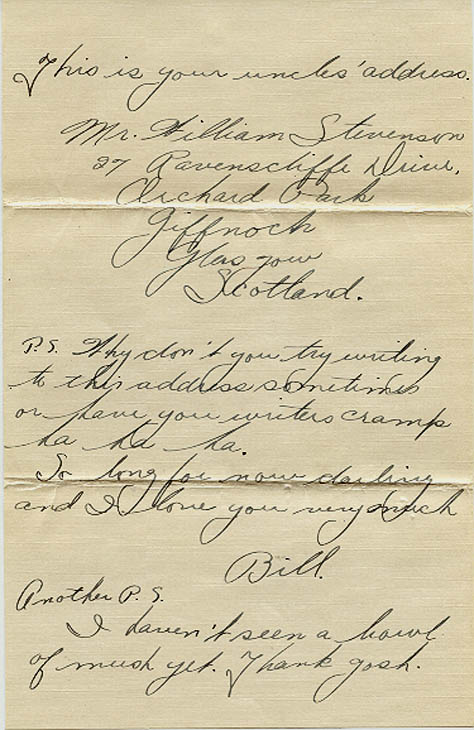 This is your uncles' address.
Mr. William Stevenson
27 Ravenscliffe Drive,
Orchard Park
Giffnoch
Glasgow
Scotland.
P.S. Why don't you try writing
to this address sometimes
or have you writers cramp
ha ha ha.
So long for now darling
and I love you very much
Bill.
Another P.S.
I haven't seen a bowl
of mush yet. Thank gosh.